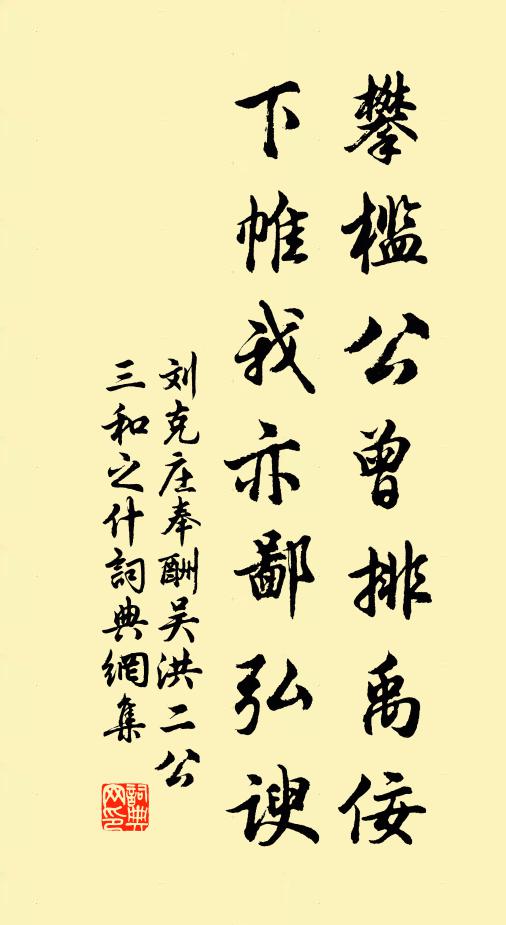 攀槛公曾排禹佞
下帷我亦鄙弘谀
刘克庄奉酬吴洪二公
三和之什詞典網集
詞典网印